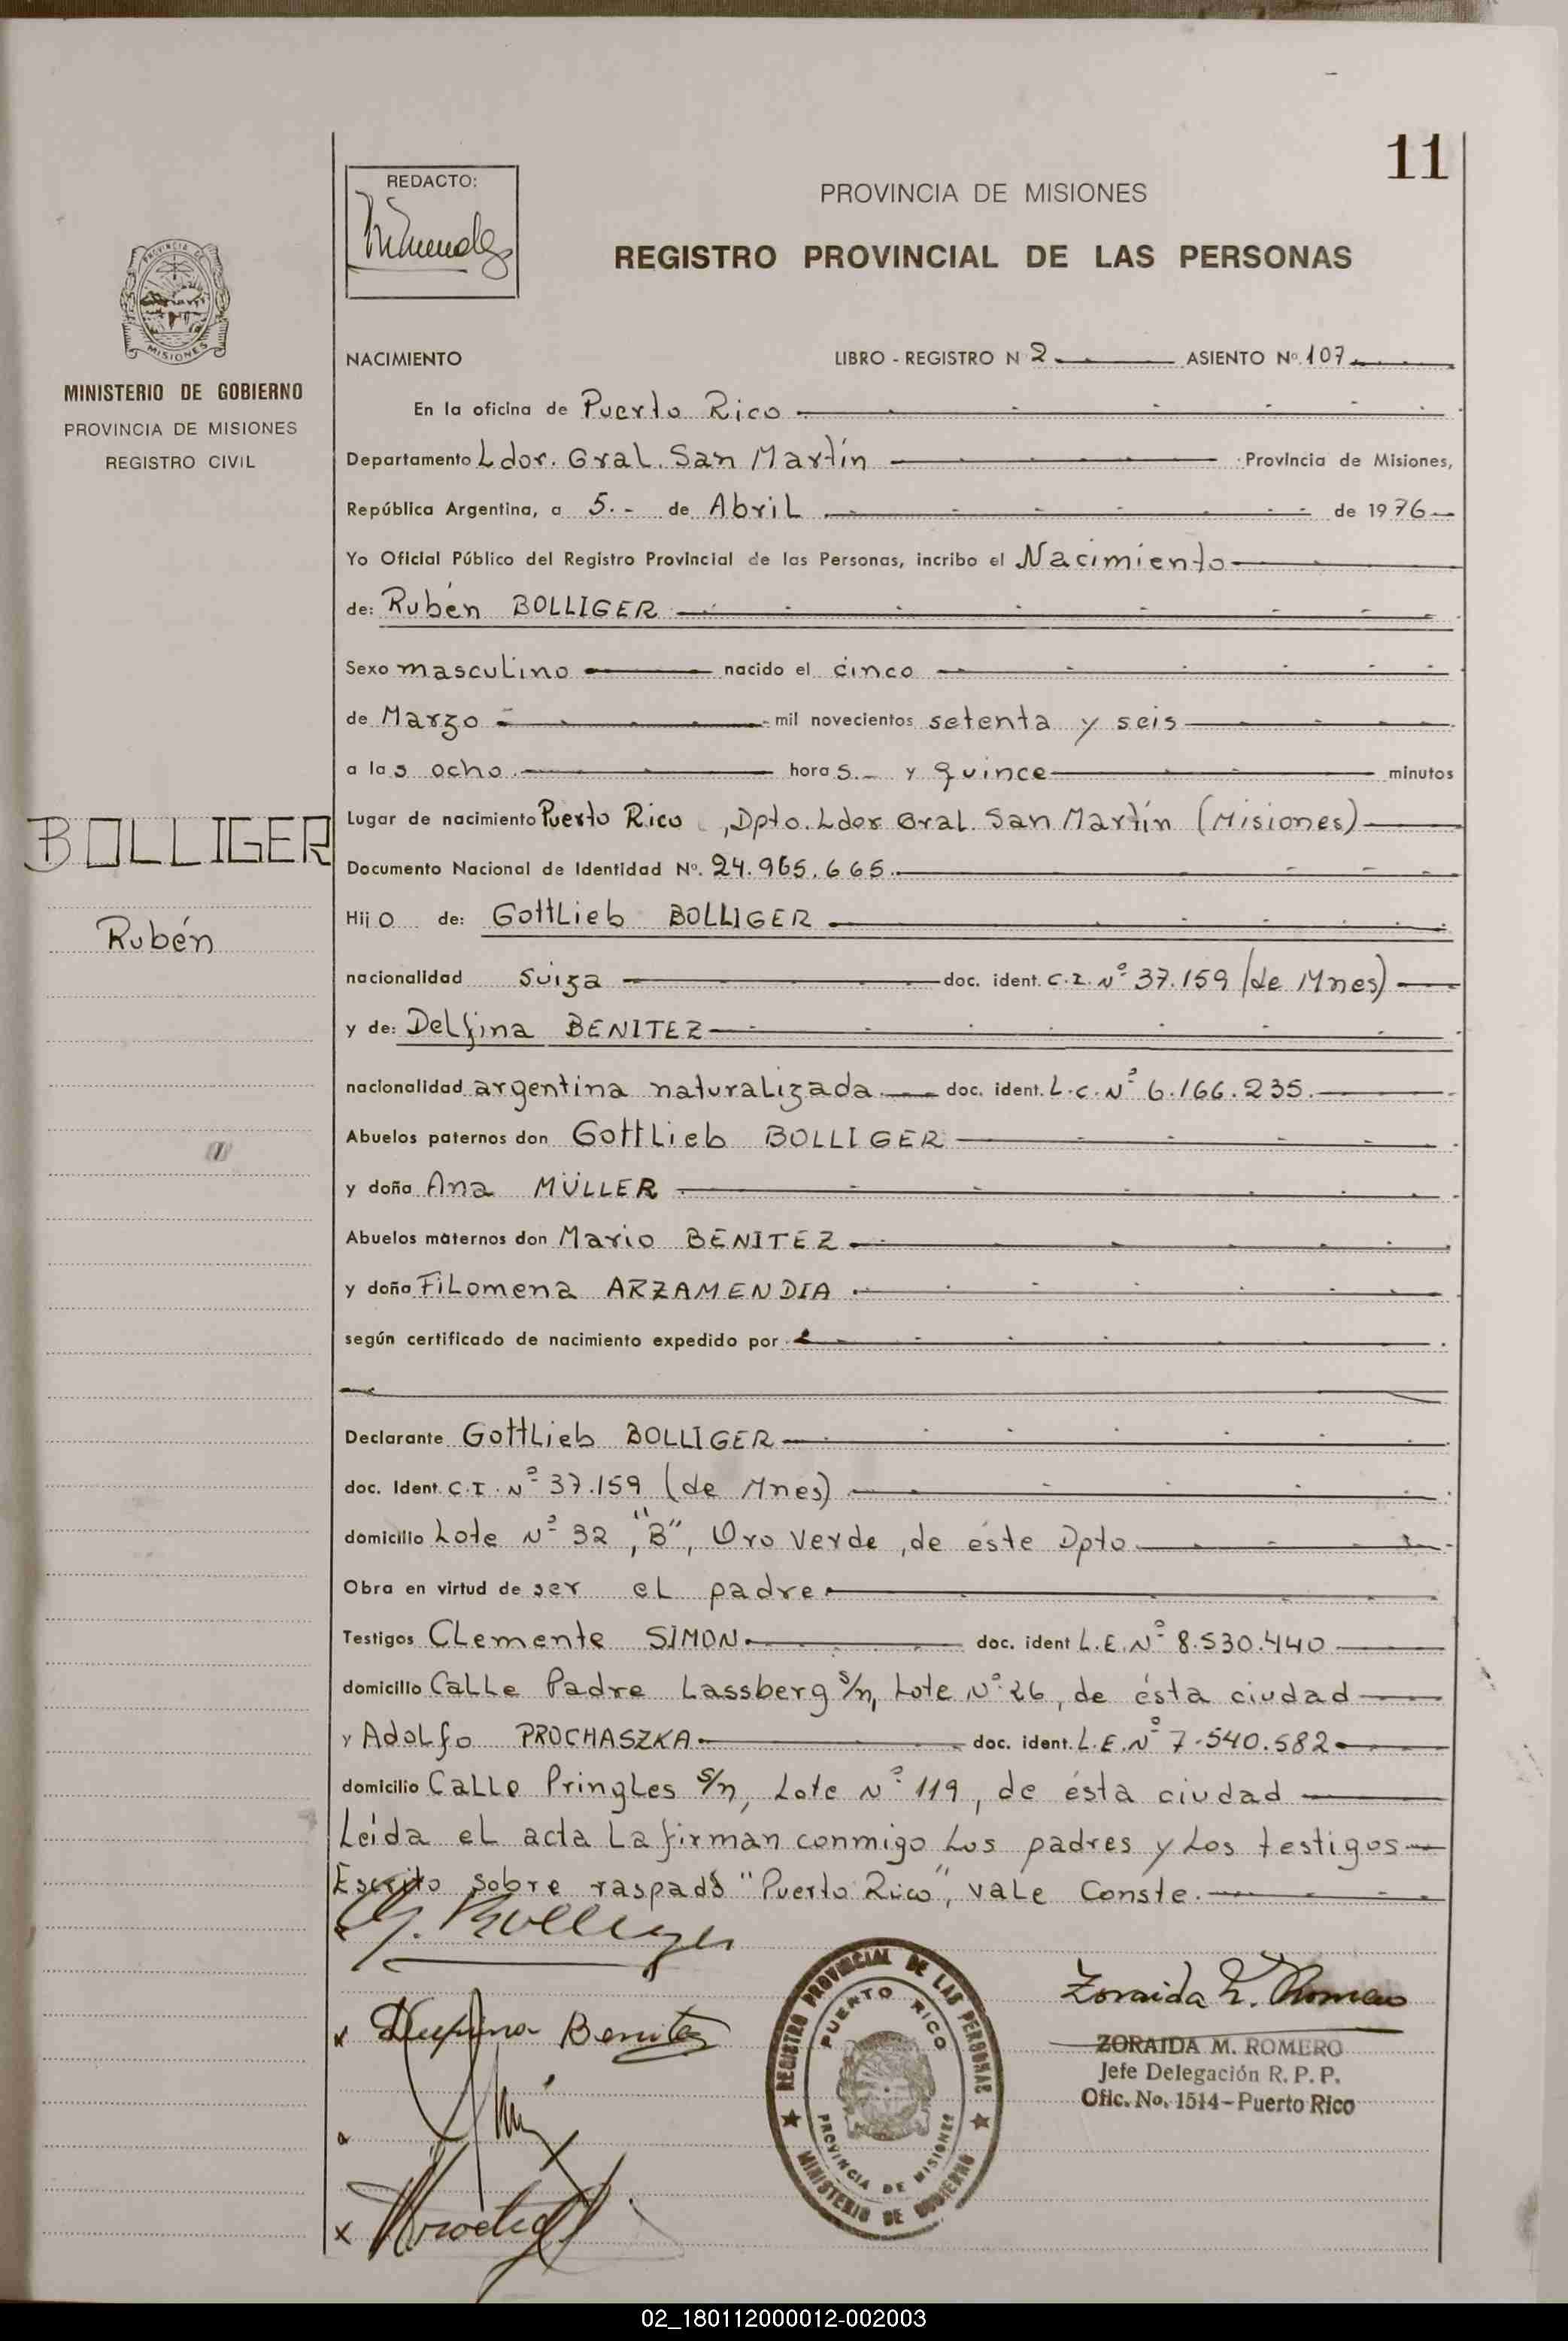 11
REDACTO:
PROVINCIA DE MISIONES
REGISTRO PROVINCIAL DE LAS PERSONAS
PROVINCIA DE
MISIONES
MINISTERIO DE GOBIERNO
PROVINCIA DE MISIONES
REGISTRO CIVIL
NACIMIENTO LIBRO - REGISTRO N 2 ASIENTO Nº 107
En la oficina de Puerto Rico
Departamento Ldor. Gral. San Martín Provincia de Misiones,
República Argentina, a 5.- de Abril de 1976
Yo Oficial Público del Registro Provincial de las Personas, incribo el Nacimiento
de: Rubén BOLLIGER
Sexo masculino nacido el cinco
de Marzo mil novecientos setenta y seis
a las ocho horas y quince minutos
Lugar de nacimiento Puerto Rico, Dpto. Ldor Gral. San Martín (Misiones)
Documento Nacional de Identidad Nº. 24.965.665.
BOLLIGER
Rubén
Hijo de: Gottlieb BOLLIGER
nacionalidad suiza doc. ident. C.I. Nº 37.159 (de Mnes)
y de: Delfina BENITEZ
nacionalidad argentina naturalizada doc. ident. L.C. Nº 6.166.235.
Abuelos paternos don Gottlieb BOLLIGER
y doña Ana MÜLLER
Abuelos maternos don Mario BENITEZ
y doña Filomena ARZAMENDIA
según certificado de nacimiento expedido por
Declarante Gottlieb BOLLIGER
doc. Ident. C.I. Nº 37.159 (de Mnes)
domicilio Lote Nº 32, "B", Oro Verde, de éste Dpto.
Obra en virtud de ser el padre
Testigos Clemente SIMON doc. ident L.E. Nº 8.530.440
domicilio Calle Padre Lassberg s/n, Lote Nº 26, de ésta ciudad
y Adolfo PROCHASZKA doc. ident. L.E. Nº 7.540.582
domicilio Calle Pringles s/n, Lote Nº 119, de ésta ciudad
Leída el acta la firman conmigo los padres y los testigos
Escrito sobre raspado "Puerto Rico", vale Conste.
G. Bolliger
x Delfina Benitez
x
REGISTRO PROVINCIAL DE LAS PERSONAS
PUERTO RICO
PROVINCIA DE MISIONES
MINISTERIO DE GOBIERNO
Zoraida M. Romero
ZORAIDA M. ROMERO
Jefe Delegación R. P. P.
Ofic. No. 1514 - Puerto Rico
02_180112000012-002003